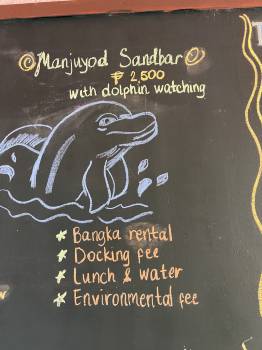 Manjuyod Sandbar
₱ 2,500
with dolphin watching
Bangka rental
Docking fee
Lunch & water
Environmental fee